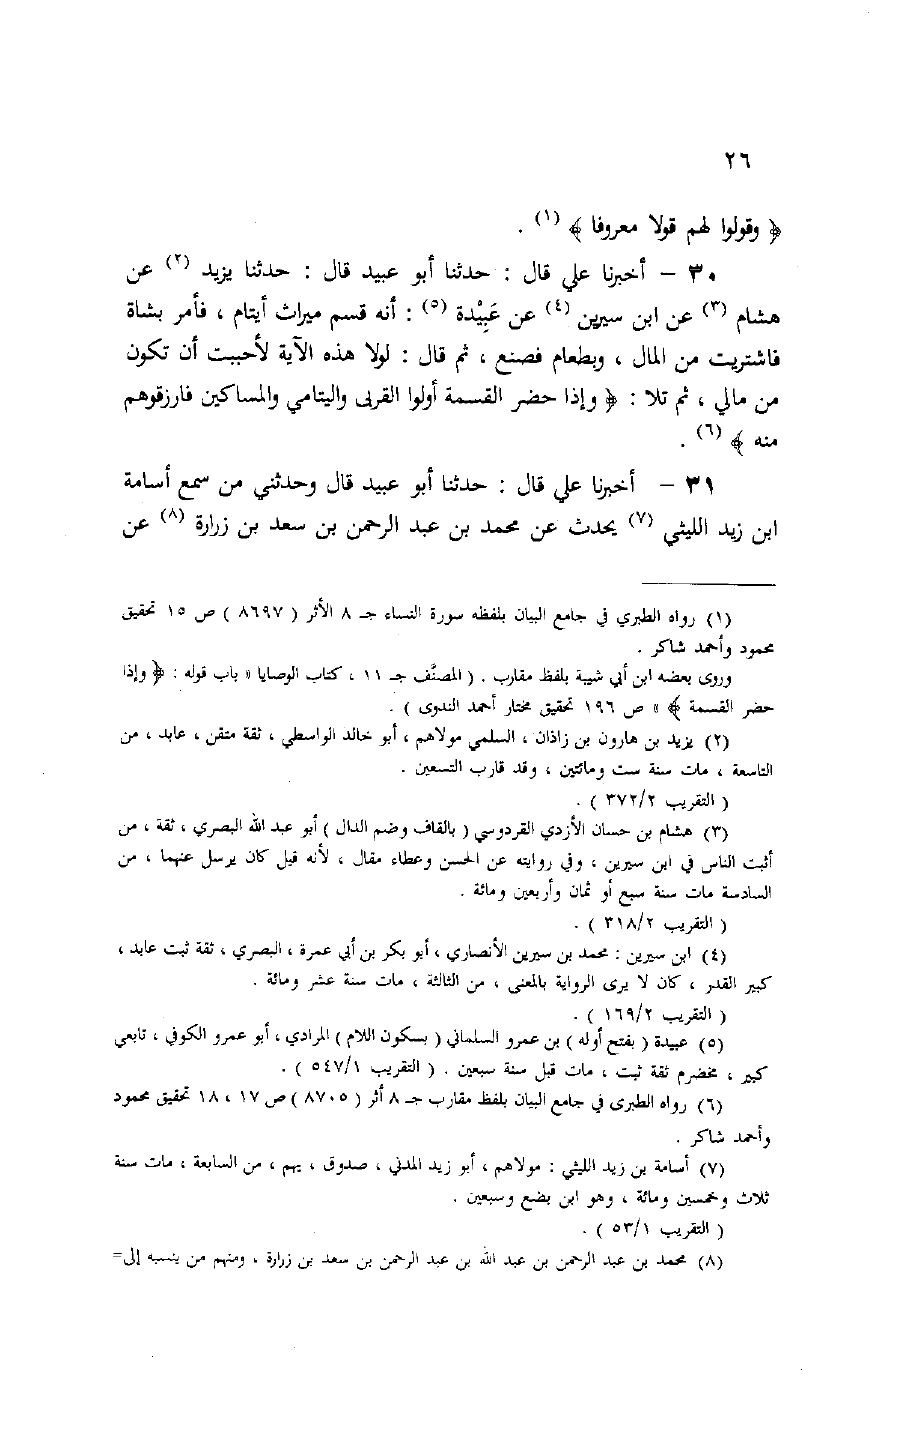 ٢٦
﴿ وقولوا لهم قولا معروفا ﴾ (١) .
٣٠ – أخبرنا علي قال : حدثنا أبو عبيد قال : حدثنا يزيد (٢) عن
هشام (٣) عن ابن سيرين (٤) عن عَبِيْدة (٥) : أنه قسم ميراث أيتام ، فأمر بشاة
فاشتريت من المال ، وبطعام فصنع ، ثم قال : لولا هذه الآية لأحببت أن تكون
من مالي ، ثم تلا : ﴿ وإذا حضر القسمة أولوا القربى واليتامي والمساكين فارزقوهم
منه ﴾ (٦) .
٣١ – أخبرنا علي قال : حدثنا أبو عبيد قال وحدثني من سمع أسامة
ابن زيد الليثي (٧) يحدث عن محمد بن عبد الرحمن بن سعد بن زرارة (٨) عن
(١) رواه الطبري في جامع البيان بلفظه سورة النساء جـ ٨ الأثر ( ٨٦٩٧ ) ص ١٥ تحقيق
محمود وأحمد شاكر .
وروى بعضه ابن أبي شيبة بلفظ مقارب . ( المصنَّف جـ ١١ ، كتاب الوصايا « باب قوله : ﴿ وإذا
حضر القسمة ﴾ » ص ١٩٦ تحقيق مختار أحمد الندوى ) .
(٢) يزيد بن هارون بن زاذان ، السلمي مولاهم ، أبو خالد الواسطي ، ثقة متقن ، عابد ، من
التاسعة ، مات سنة ست ومائتين ، وقد قارب التسعين .
( التقريب ٣٧٢/٢ ) .
(٣) هشام بن حسان الأزدي القردوسي ( بالقاف وضم الدال ) أبو عبد الله البصري ، ثقة ، من
أثبت الناس في ابن سيرين ، وفي روايته عن الحسن وعطاء مقال ، لأنه قيل كان يرسل عنهما ، من
السادسة مات سنة سبع أو ثمان وأربعين ومائة .
( التقريب ٣١٨/٢ ) .
(٤) ابن سيرين : محمد بن سيرين الأنصاري ، أبو بكر بن أبي عمرة ، البصري ، ثقة ثبت عابد ،
كبير القدر ، كان لا يرى الرواية بالمعنى ، من الثالثة ، مات سنة عشر ومائة .
( التقريب ١٦٩/٢ ) .
(٥) عبيدة ( بفتح أوله ) بن عمرو السلماني ( بسكون اللام ) المرادي ، أبو عمرو الكوفي ، تابعي
كبير ، مخضرم ثقة ثبت ، مات قبل سنة سبعين . ( التقريب ٥٤٧/١ ) .
(٦) رواه الطبرى في جامع البيان بلفظ مقارب جـ ٨ أثر ( ٨٧٠٥ ) ص ١٧ ، ١٨ تحقيق محمود
وأحمد شاكر .
(٧) أسامة بن زيد الليثي : مولاهم ، أبو زيد المدني ، صدوق ، يهم ، من السابعة ، مات سنة
ثلاث وخمسين ومائة ، وهو ابن بضع وسبعين .
( التقريب ٥٣/١ ) .
(٨) محمد بن عبد الرحمن بن عبد الله بن عبد الرحمن بن سعد بن زرارة ، ومنهم من ينسبه إلى=